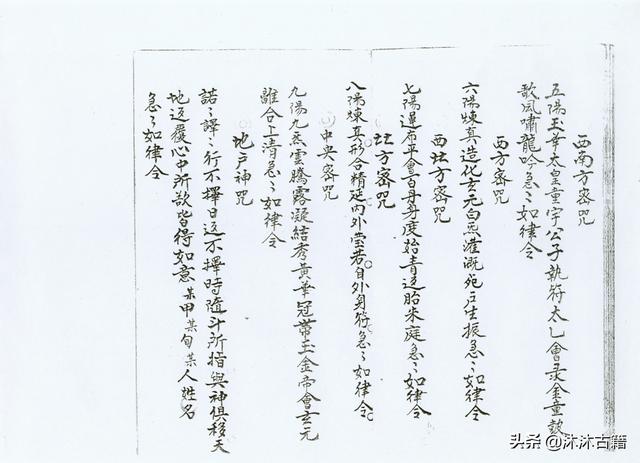 西南方密咒
五陽玉華太皇童字公子執符太乙會景金童鼓
歌風嘯龍吟急〻如律令
西方密咒
六陽煉真造化玄元白炁灌溉宛戶生振急〻如律令
西北方密咒
七陽運布平會百丹身度始青返胎朱庭急〻如律令
北方密咒
八陽煉真形合精延內外瑩若自外身符急〻如律令
中央密咒
九陽九炁雲騰露凝結秀黃華冠帶玉金帝會玄元
離合上清急〻如律令
地戶神咒
諾〻譯〻行不擇日返不擇時隨斗所指與神俱移天
地返覆心中所欲皆得如意某甲某旬某人姓名
急〻如律令
头条 @沐沐古籍